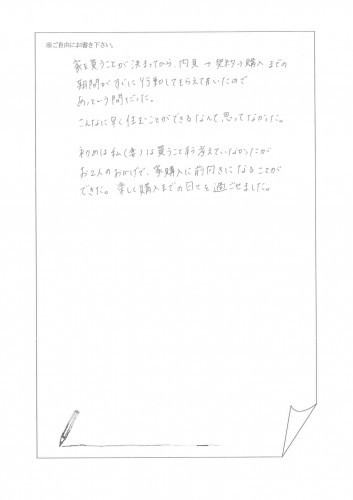 ※ご自由にお書き下さい。
家を買うことが決まってから、内見→契約→購入までの
期間がすぐに行動してもらえていたので
あっという間だった。
こんなに早く住むことができるなんて思ってなかった。
初めは私(妻)は買うことを考えていなかったが
お2人のおかげで、家購入に前向きになることが
できた。楽しく購入までの日々を過ごせました。